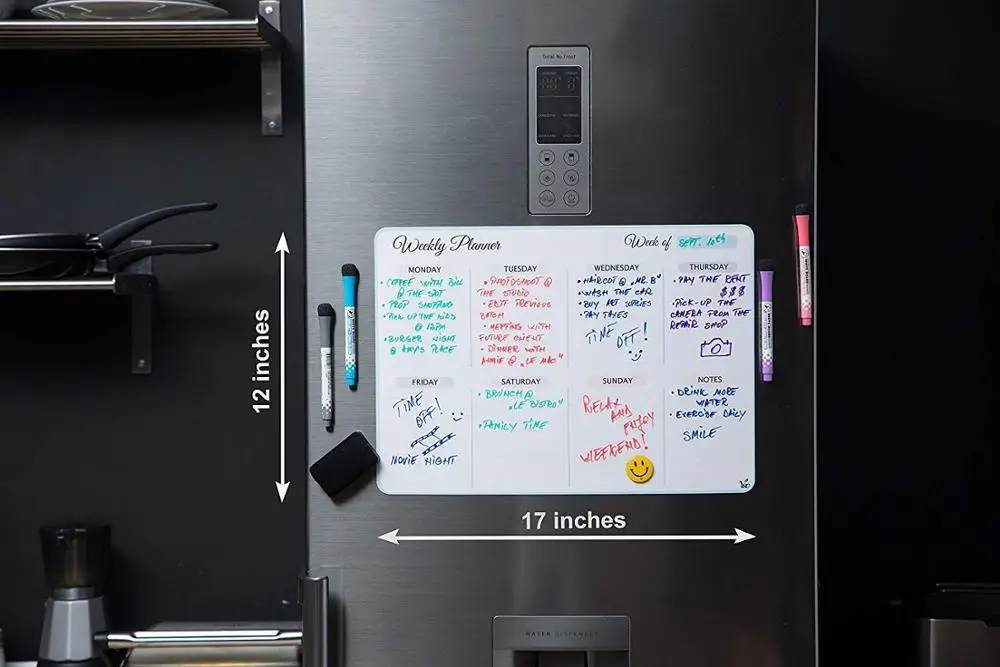 Total No Frost
Weekly Planner
Week of SEPT. 10th
MONDAY
• COFFEE WITH BILL
@ THE SPOT
• PROP SHOPPING
• PICK UP THE KIDS
@ 12PM
• BURGER NIGHT
@ AMYS PLACE
TUESDAY
• PHOTOSHOOT @
THE STUDIO
• EDIT PREVIOUS
BATCH
• MEETING WITH
FUTURE CLIENT
• DINNER WITH
ANNIE @ „LE MAC"
WEDNESDAY
• HAIRCUT @ „MR. B"
• WASH THE CAR
• BUY ART SUPPLIES
• PAY TAXES
TIME OFF!
THURSDAY
• PAY THE RENT
$$$
• PICK-UP THE
CAMERA FROM THE
REPAIR SHOP
FRIDAY
TIME
OFF!
MOVIE NIGHT
SATURDAY
• BRUNCH @
„LE BISTRO"
• FAMILY TIME
SUNDAY
RELAX
AND
ENJOY
WEEKEND!
NOTES
• DRINK MORE
WATER
• EXERCISE DAILY
SMILE
12 inches
17 inches
WATER DISPENSER